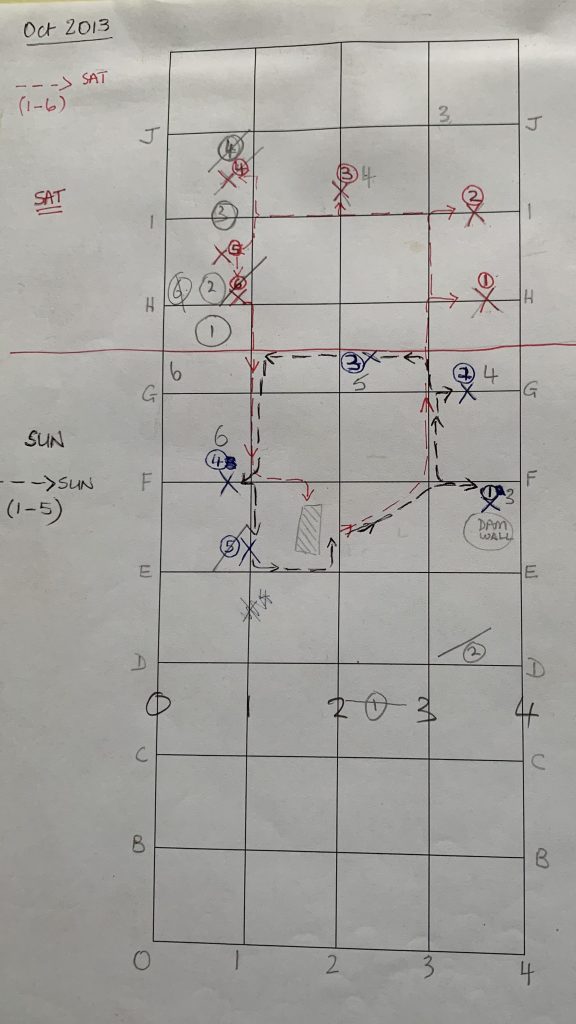 Oct 2013
---> SAT
(1-6)
3
J J
4
4
3 4
SAT
2
I 3 I
5
1
6 2 6
H H
1
3
6 5 2 4
G G
SUN
6
4
---> SUN F F
1 3
(1-5)
DAM
WALL
5
E E
4
2
D D
0 1 2 1 3 4
C C
B B
0 1 2 3 4